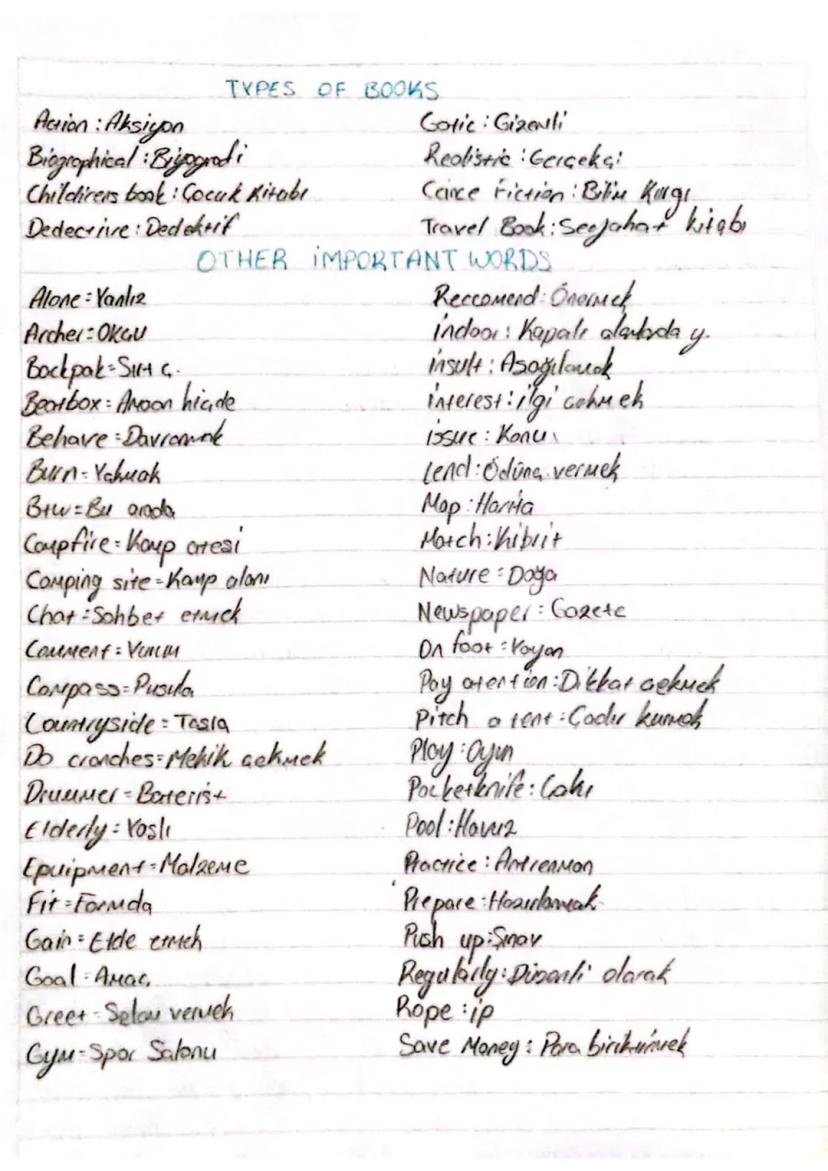 TYPES OF BOOKS
Action : Aksiyon
Biographical : Biyografi
Childirens book : Çocuk Kitabı
Dedective : Dedektif
Gotic : Gizemli
Realistic : Gerçekçi
Cience Fiction : Bilim Kurgı
Travel Book : Seejahat kitabı
OTHER İMPORTANT WORDS
Alone = Yanlız
Archer = OKÇU
Backpak = Sırt ç.
Beatbox =
Behave = Davranmak
Burn = Yakmak
Btw = Bu arada
Campfire = Kamp ateşi
Camping site = Kamp alanı
Chat = Sohbet etmek
Comment = Yorum
Compass = Pusula
Countryside = Taşra
Do cranches = Mekik çekmek
Drummer = Baterist
Elderly = Yaşlı
Epuipment = Malzeme
Fit = Formda
Gain = Elde etmek
Goal = Amaç
Greet = Selam vermek
Gym = Spor Salonu
Reccomend : Önermek
indoor : Kapalı alanlarda y.
insult : Aşağılamak
interest : ilgi çekmek
issue : Konu
Lend : Ödünç vermek
Map : Harita
Match : Kibrit
Nature : Doğa
Newspaper : Gazete
On foot : Yayan
Pay atention : Dikkat çekmek
Pitch a tent : Çadır kurmak
Play : Oyun
Pocketknife : Çakı
Pool : Havuz
Practice : Antrenman
Prepare : Hazırlamak
Push up : Şınav
Regularly : Düzenli olarak
Rope : ip
Save Money : Para biriktirmek